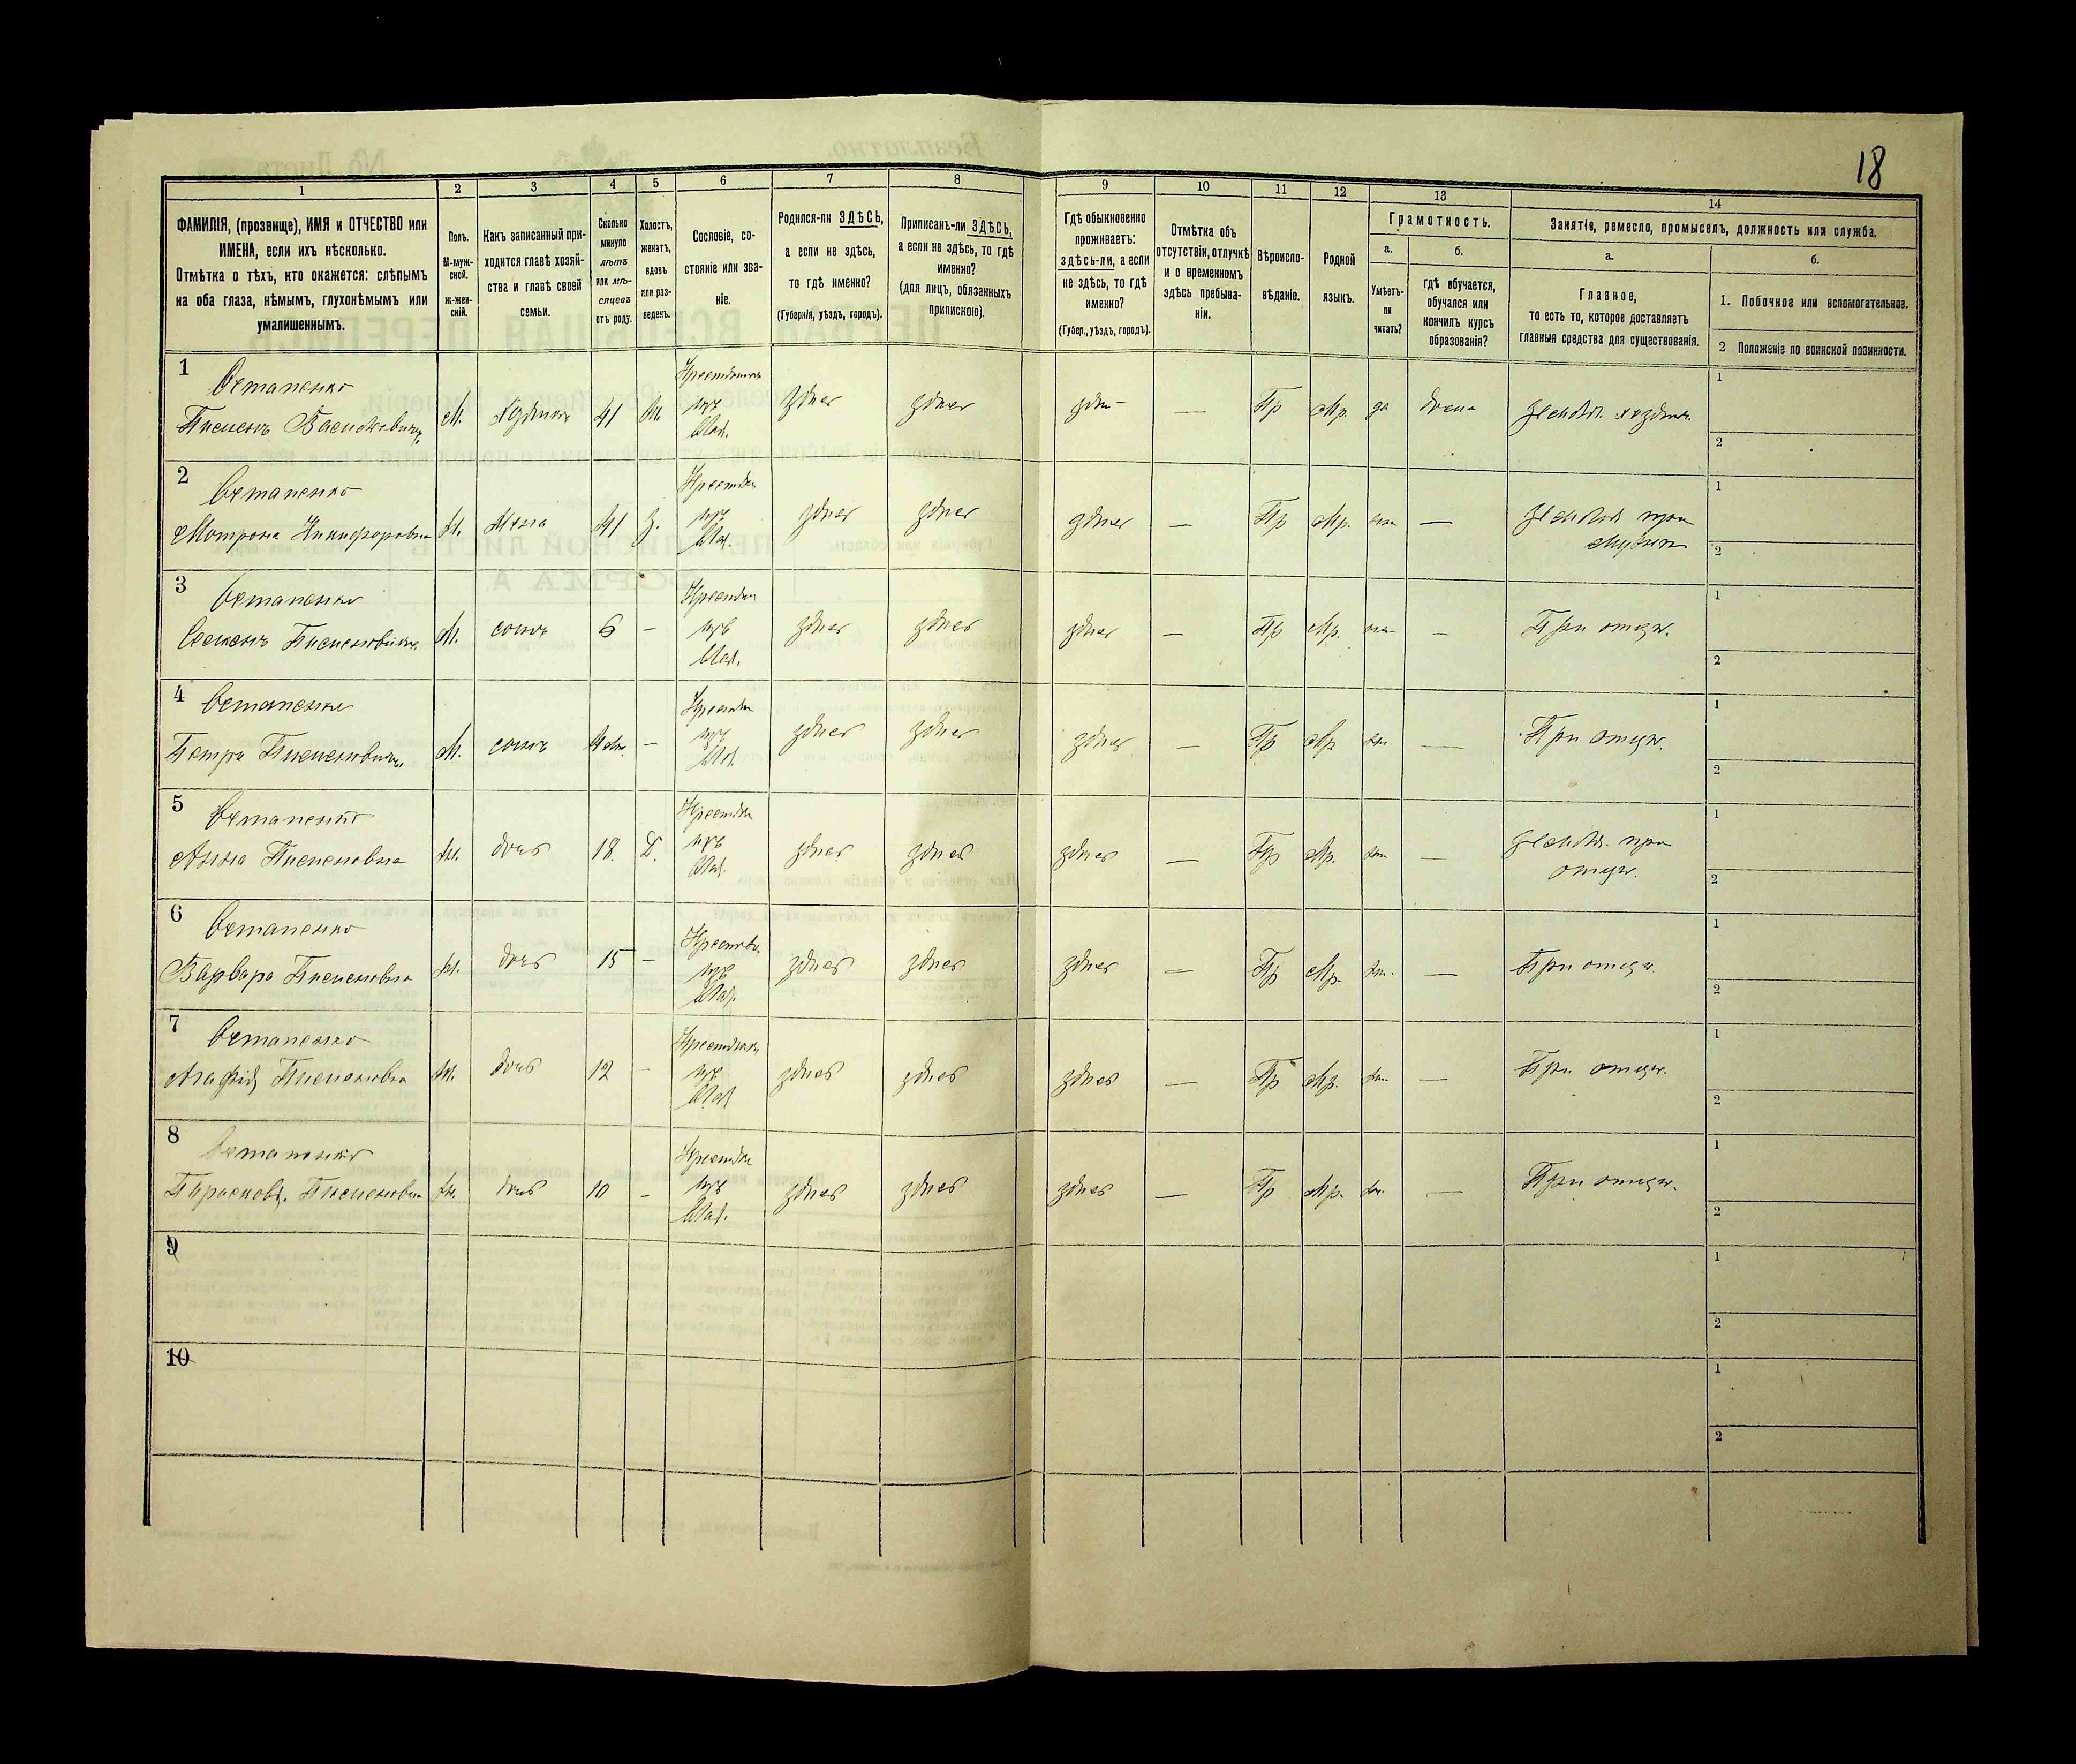 18
1 2 3 4 5 6 7 8 9 10 11 12 13 14
ФАМИЛІЯ, (прозвище), ИМЯ и ОТЧЕСТВО или
ИМЕНА, если ихъ нѣсколько.
Отмѣтка о тѣхъ, кто окажется: слѣпымъ
на оба глаза, нѣмымъ, глухонѣмымъ или
умалишеннымъ.
Полъ.
М-муж-
ской.
ж-жен-
скій.
Какъ записанный при-
ходится главѣ хозяй-
ства и главѣ своей
семьи.
Сколько
минуло
лѣтъ
или мѣ-
сяцевъ
отъ роду.
Холостъ,
женатъ,
вдовъ
или раз-
веденъ.
Сословіе, со-
стояніе или зва-
ніе.
Родился-ли ЗДѢСЬ,
а если не здѣсь,
то гдѣ именно?
(Губернія, уѣздъ, городъ).
Приписанъ-ли ЗДѢСЬ,
а если не здѣсь, то гдѣ
именно?
(для лицъ, обязанныхъ
припискою).
Гдѣ обыкновенно
проживаетъ:
здѣсь-ли, а если
не здѣсь, то гдѣ
именно?
(Губер., уѣздъ, городъ).
Отмѣтка объ
отсутствіи, отлучкѣ
и о временномъ
здѣсь пребыва-
ніи.
Вѣроиспо-
вѣданіе.
Родной
языкъ.
Грамотность.
а.
Умѣетъ-
ли
читать?
б.
гдѣ обучается,
обучался или
кончилъ курсъ
образованія?
Занятіе, ремесло, промыселъ, должность или служба.
а.
Главное,
то есть то, которое доставляетъ
главныя средства для существованія.
б.
1. Побочное или вспомогательное.
2 Положеніе по воинской повинности.
1
Остапенко
Пименъ Васильевичъ М. хозяинъ 41 Ж. здѣсь здѣсь — Пр Мр. да дома
1
2
2
Остапенко
Мотрона Никифоровна Ж. Жена 41 З. здѣсь здѣсь здѣсь — Пр Мр. — Землед. при
мужѣ
1
2
3
Остапенко
Семенъ Пименовичъ М. сынъ 6 — здѣсь здѣсь здѣсь — Пр Мр. — При отцѣ.
1
2
4
Остапенко
Петръ Пименовичъ М. сынъ — здѣсь здѣсь здѣсь — Пр Мр — При отцѣ.
1
2
5
Остапенко
Анна Пименовна Ж. дочь 18. Д. здѣсь здѣсь здѣсь — Пр Мр. — Землед. при
отцѣ.
1
2
6
Остапенко
Варвара Пименовна Ж. дочь 15 — здѣсь здѣсь здѣсь — Пр Мр. — При отцѣ.
1
2
7
Остапенко
Агафія Пименовна Ж. дочь 12 — здѣсь здѣсь здѣсь — Пр Мр. — При отцѣ.
1
2
8
Остапенко
Прасковія Пименовна Ж. дочь 10 — здѣсь здѣсь здѣсь — Пр Мр. — При отцѣ.
1
2
9
1
2
10
1
2